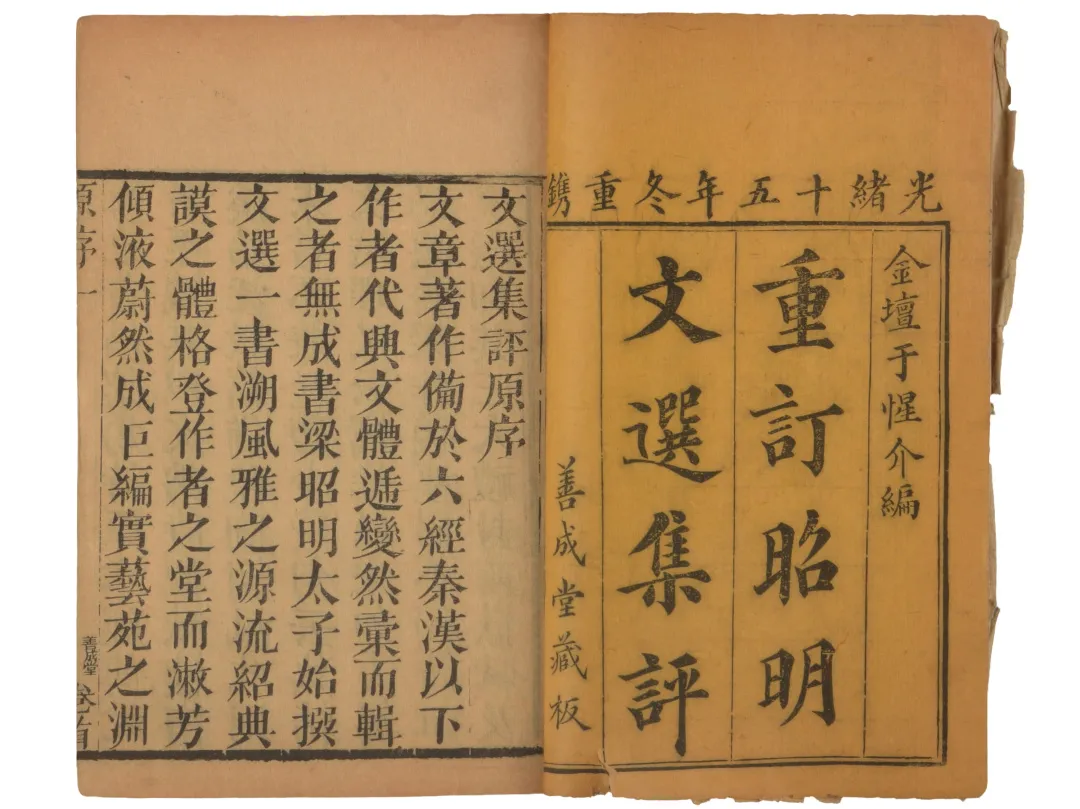 光緒十五年冬重鐫
金壇于惺介編
重訂昭明
文選集評
善成堂藏板
文選集評原序
文章著作備於六經秦漢以下
作者代興文體遞變然彙而輯
之者無成書梁昭明太子始撰
文選一書溯風雅之源流紹典
謨之體格登作者之堂而漱芳
傾液蔚然成巨編實藝苑之淵
原序一
善成堂
卷首